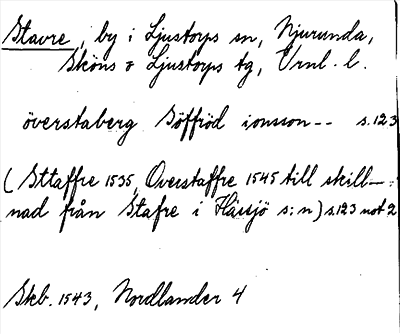 Stavre, by i Ljustorps sn, Njurunda,
Sköns o Ljustorps tg, Vrnl. l.
överstaberg Göffröd ionsson -- s. 123
(Sttaffre 1535, Overstaffre 1545 till skill-
nad från Stafre i Hässjö s:n) s. 123 not 2
Skb. 1543, Nordlander 4